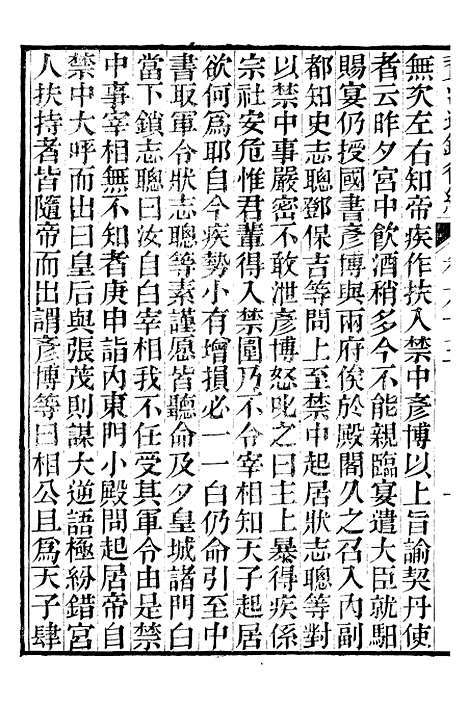 無次左右知帝疾作扶入禁中彥博以上旨諭契丹使
者云昨夕宮中飮酒稍多今不能親臨宴遣大臣就馹
賜宴仍授國書彥博與兩府俟於殿閣久之召入內副
都知史志聰鄧保吉等問上至禁中起居狀志聰等對
以禁中事嚴密不敢泄彥博怒叱之曰主上暴得疾係
宗社安危惟君輩得入禁闈乃不令宰相知天子起居
欲何爲耶自今疾勢小有增損必一一白仍命引至中
書取軍令狀志聰等素謹愿皆聽命及夕皇城諸門白
當下鎖志聰曰汝自白宰相我不任受其軍令由是禁
中事宰相無不知者庚申詣內東門小殿問起居帝自
禁中大呼而出曰皇后與張茂則謀大逆語極紛錯宮
人扶持者皆隨帝而出謂彥博等曰相公且爲天子肆